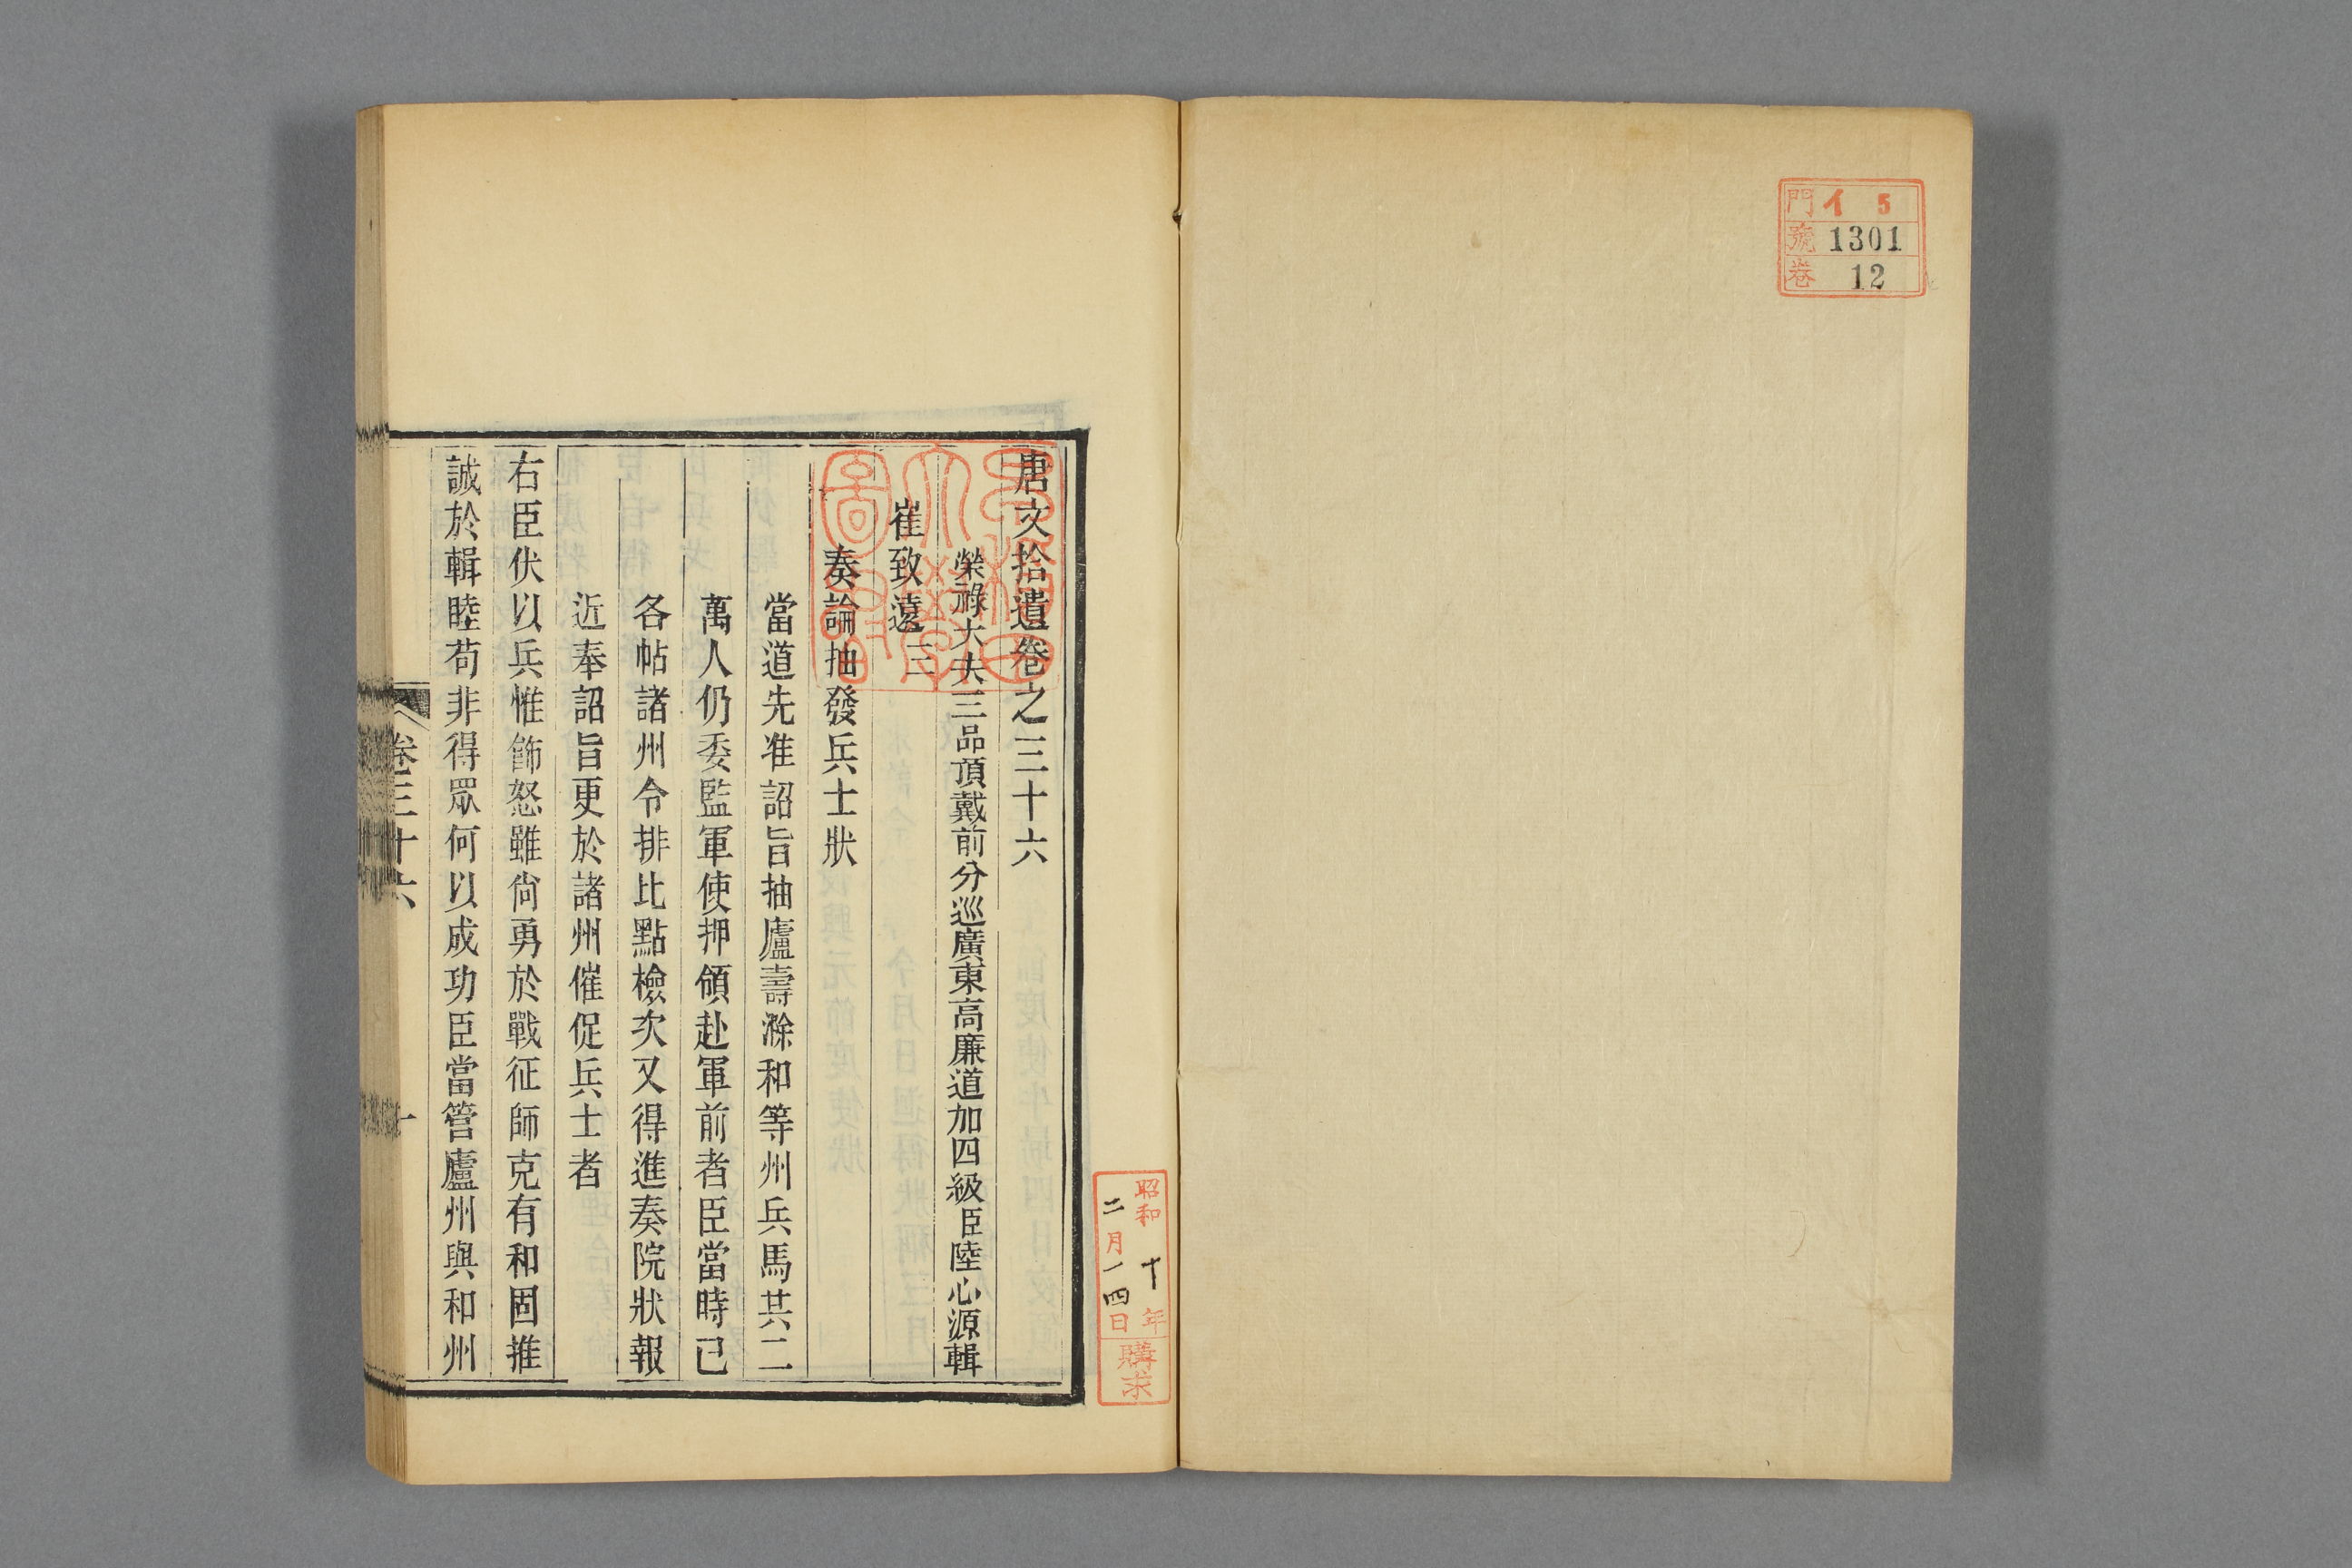 門イ 5
號 1301
卷 12
昭和十年
二月一四日
購求
唐文拾遺卷之三十六
榮祿大夫三品頂戴前分巡廣東高廉道加四級臣陸心源輯
崔致遠三
奏論抽發兵士狀
當道先准詔旨抽廬壽滁和等州兵馬共二
萬人仍委監軍使押領赴軍前者臣當時已
各帖諸州令排比點檢次又得進奏院狀報
近奉詔旨更於諸州催促兵士者
右臣伏以兵惟飾怒雖尙勇於戰征師克有和固推
誠於輯睦苟非得眾何以成功臣當管廬州與和州
卷三十六
一